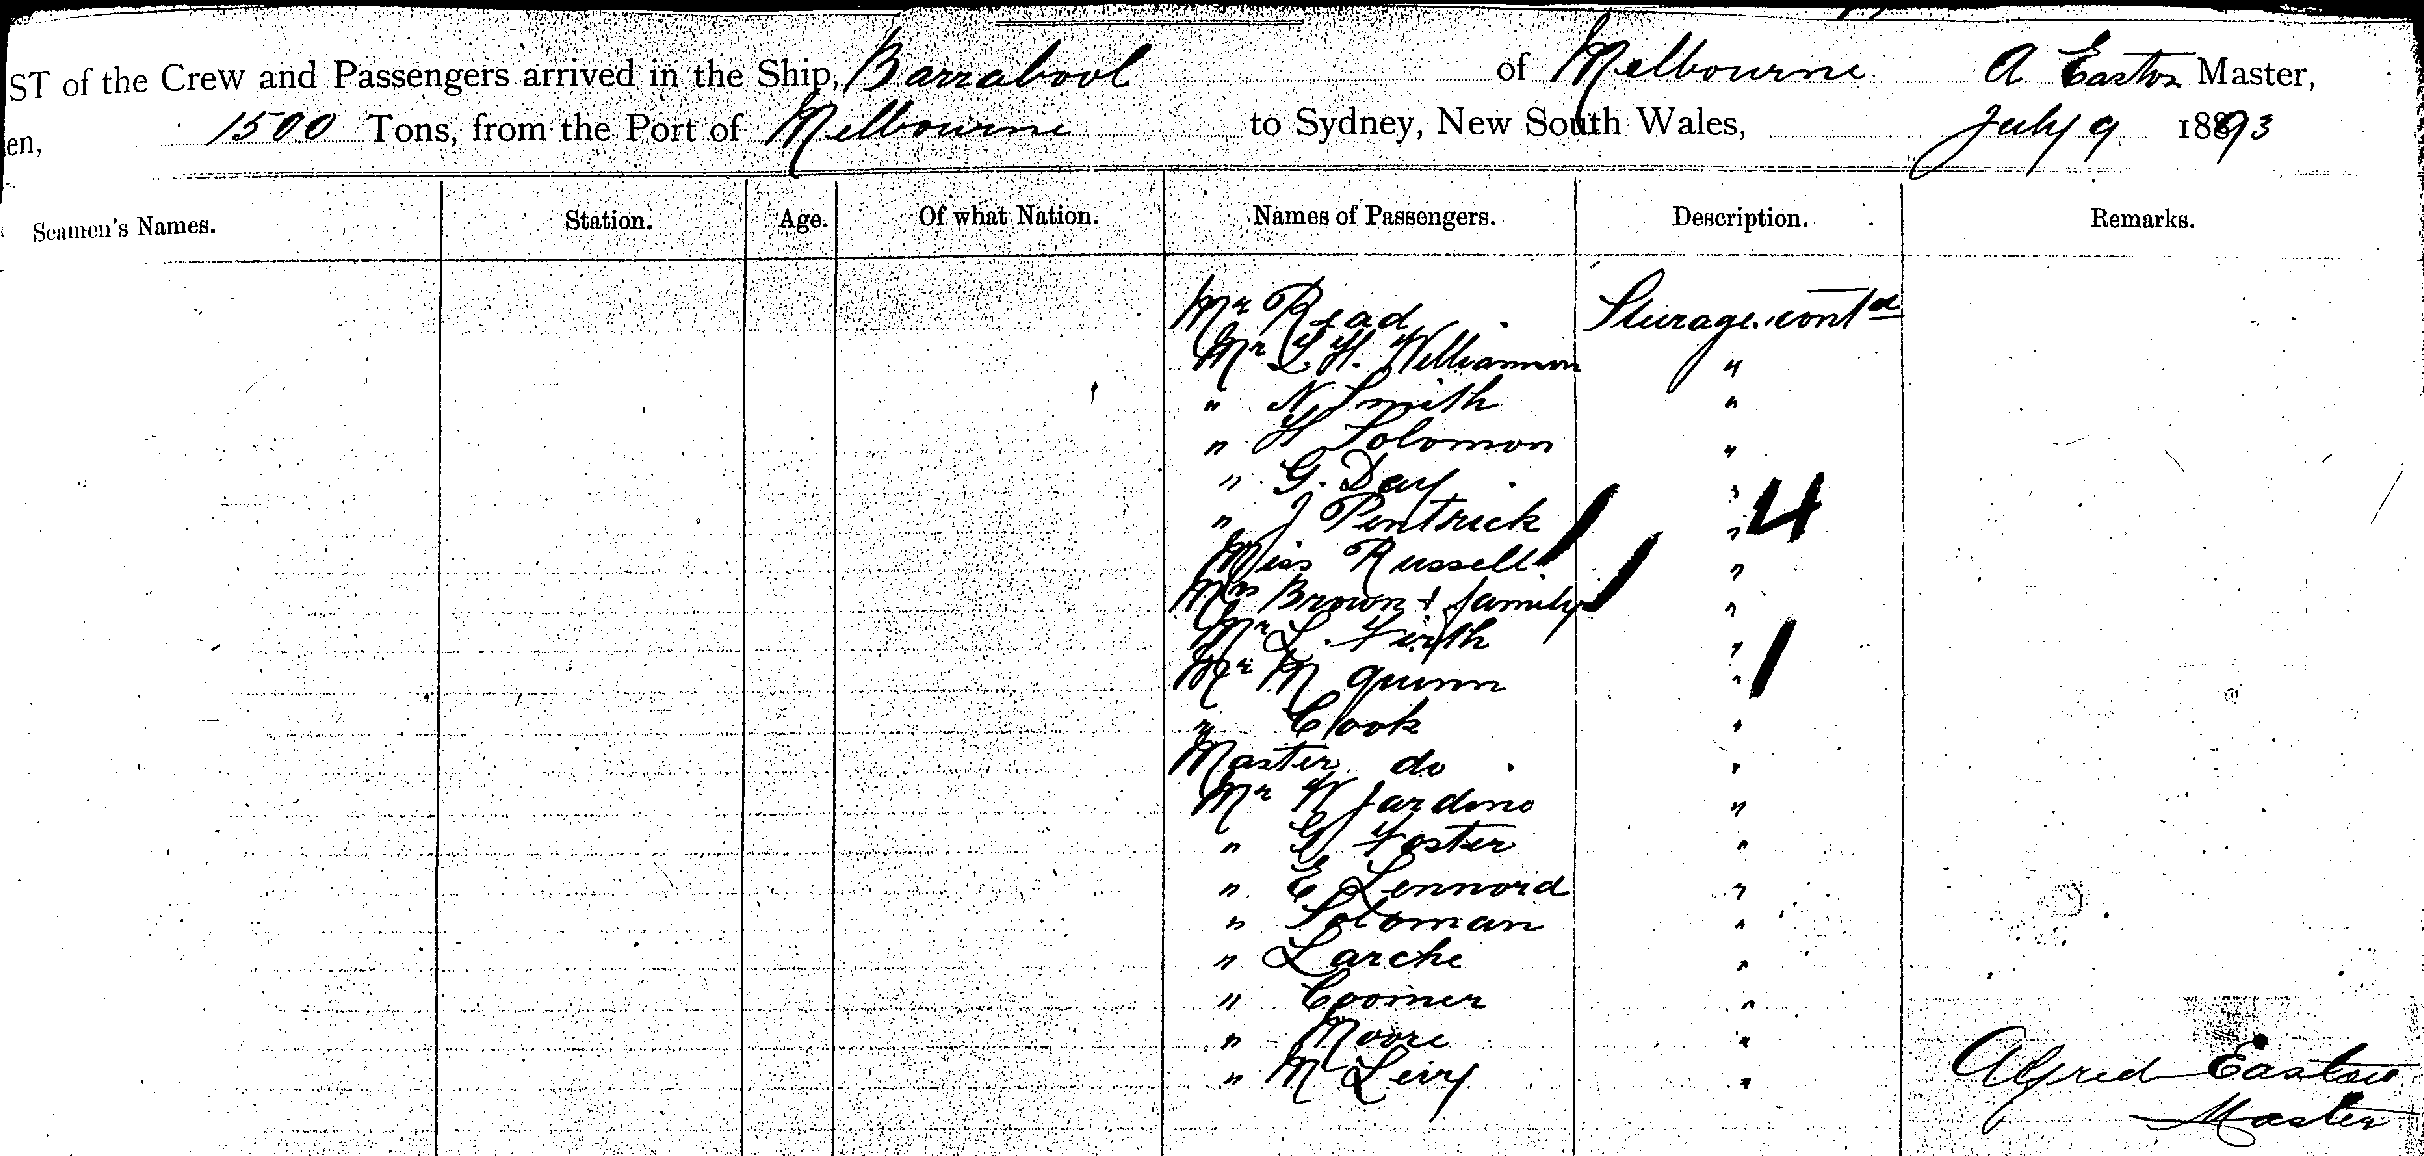 ST of the Crew and Passengers arrived in the Ship, Barrabool of Melbourne A Easton Master,
en, 1500 Tons, from the Port of Melbourne to Sydney, New South Wales, July 9 1893
Seamen's Names. Station. Age. Of what Nation. Names of Passengers. Description. Remarks.
Mr Read Steerage contd
Mr L H. Williamson "
" N Smith "
" H Solomon "
" G. Day "
" J Pentrick " 4
Miss Russell "
Mrs Brown + family "
Mr L. Firth "
Mr M Quinn "
" Cook "
Master do "
Mr W Jardine "
" G Foster "
" E Lennord "
" Soloman "
" Larche "
" Coomer "
" Moore "
" M Levy "
Alfred Easton
Master